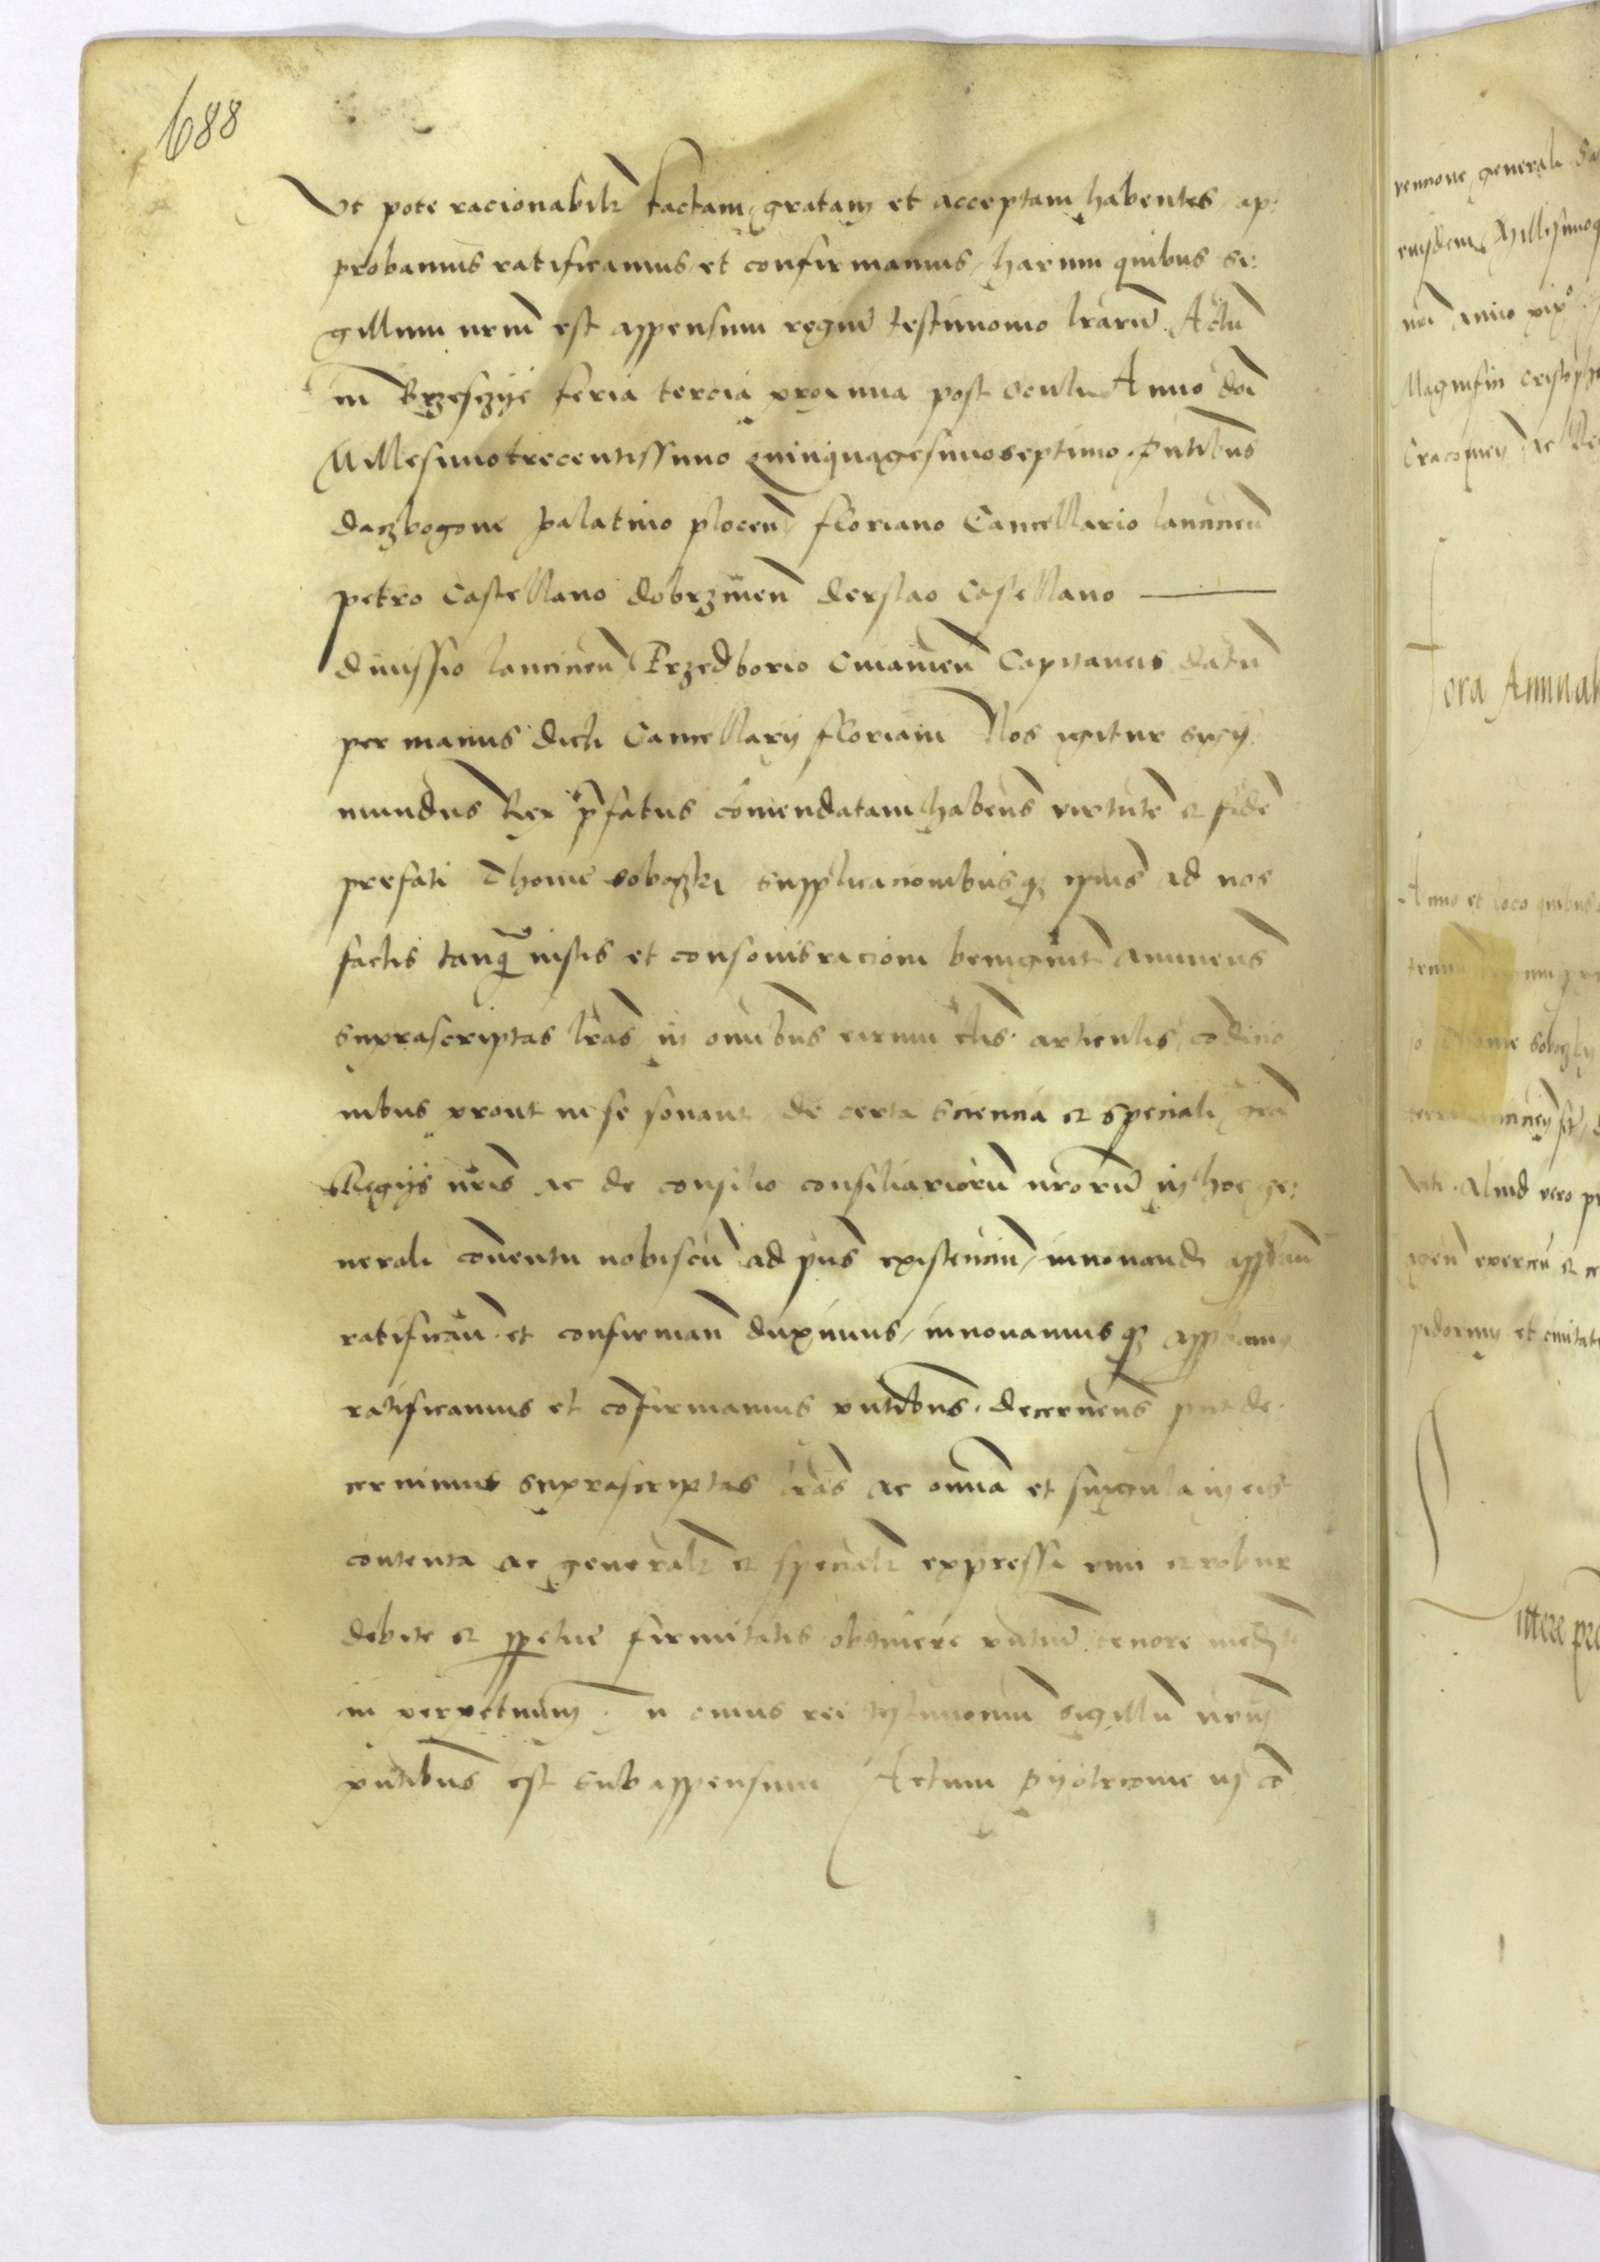 688
Ut pote racionabilr factam, gratam et acceptam habentes, ap:
probamus ratificamus, et confirmamus, harum quibus si:
gillum nrm est appensum regim testimonio lrarum. Actu
in Brzesczye feria tercia proxima post oculi Anno dni
Millesimotrecentissimo quinquagesimoseptimo, pntibus
daczbogone palatino plocen, floriano Cancellario lancicien
petro Castellano dobrzinen derslao Castellano
divissio lancicien Przedborio Cuiavien Capitaneis datu
per manus dicti Cancellarij floriani Nos igitur sigis
mundus Rex pfatus comendatam habens virtute et fide
prefati Thome soboczki supplicacionibusqz ipius ad nos
factis tanqm iustis et consonis racioni benignit annuens
suprascriptas lras in omibus earum clis, articulis, codicio
nibus prout in se sonant, de certa sciencia et speciali gra
Regijs nris ac de consilio consiliarioru nroru in hoc ge:
nerali conventu nobiscu ad pns existenciu, innovand appban
ratifican et confirman duximus, innovamusqz appbamus
ratificamus et cofirmamus pntibus, decernens put de
cernimus suprascriptas lras ac omia et singula in eis
contenta ac generalr et specialr expressa vim et robur
debite et ppetue firmitatis obtinere pntiu tenore med
in perpetuum. In cuius rei testimonium sigillu nrum
pntibus est subappensum Actum Pyotrcovie in co
vencione generali
eiusdem Millesimoq
nri anno xix
Magnifici Cristoph
Cracovien ac
fora Annual
Anno et loco quibus
Thome soboczky
Aliud vero
exercen et
pidorum et civitat
ittere pre